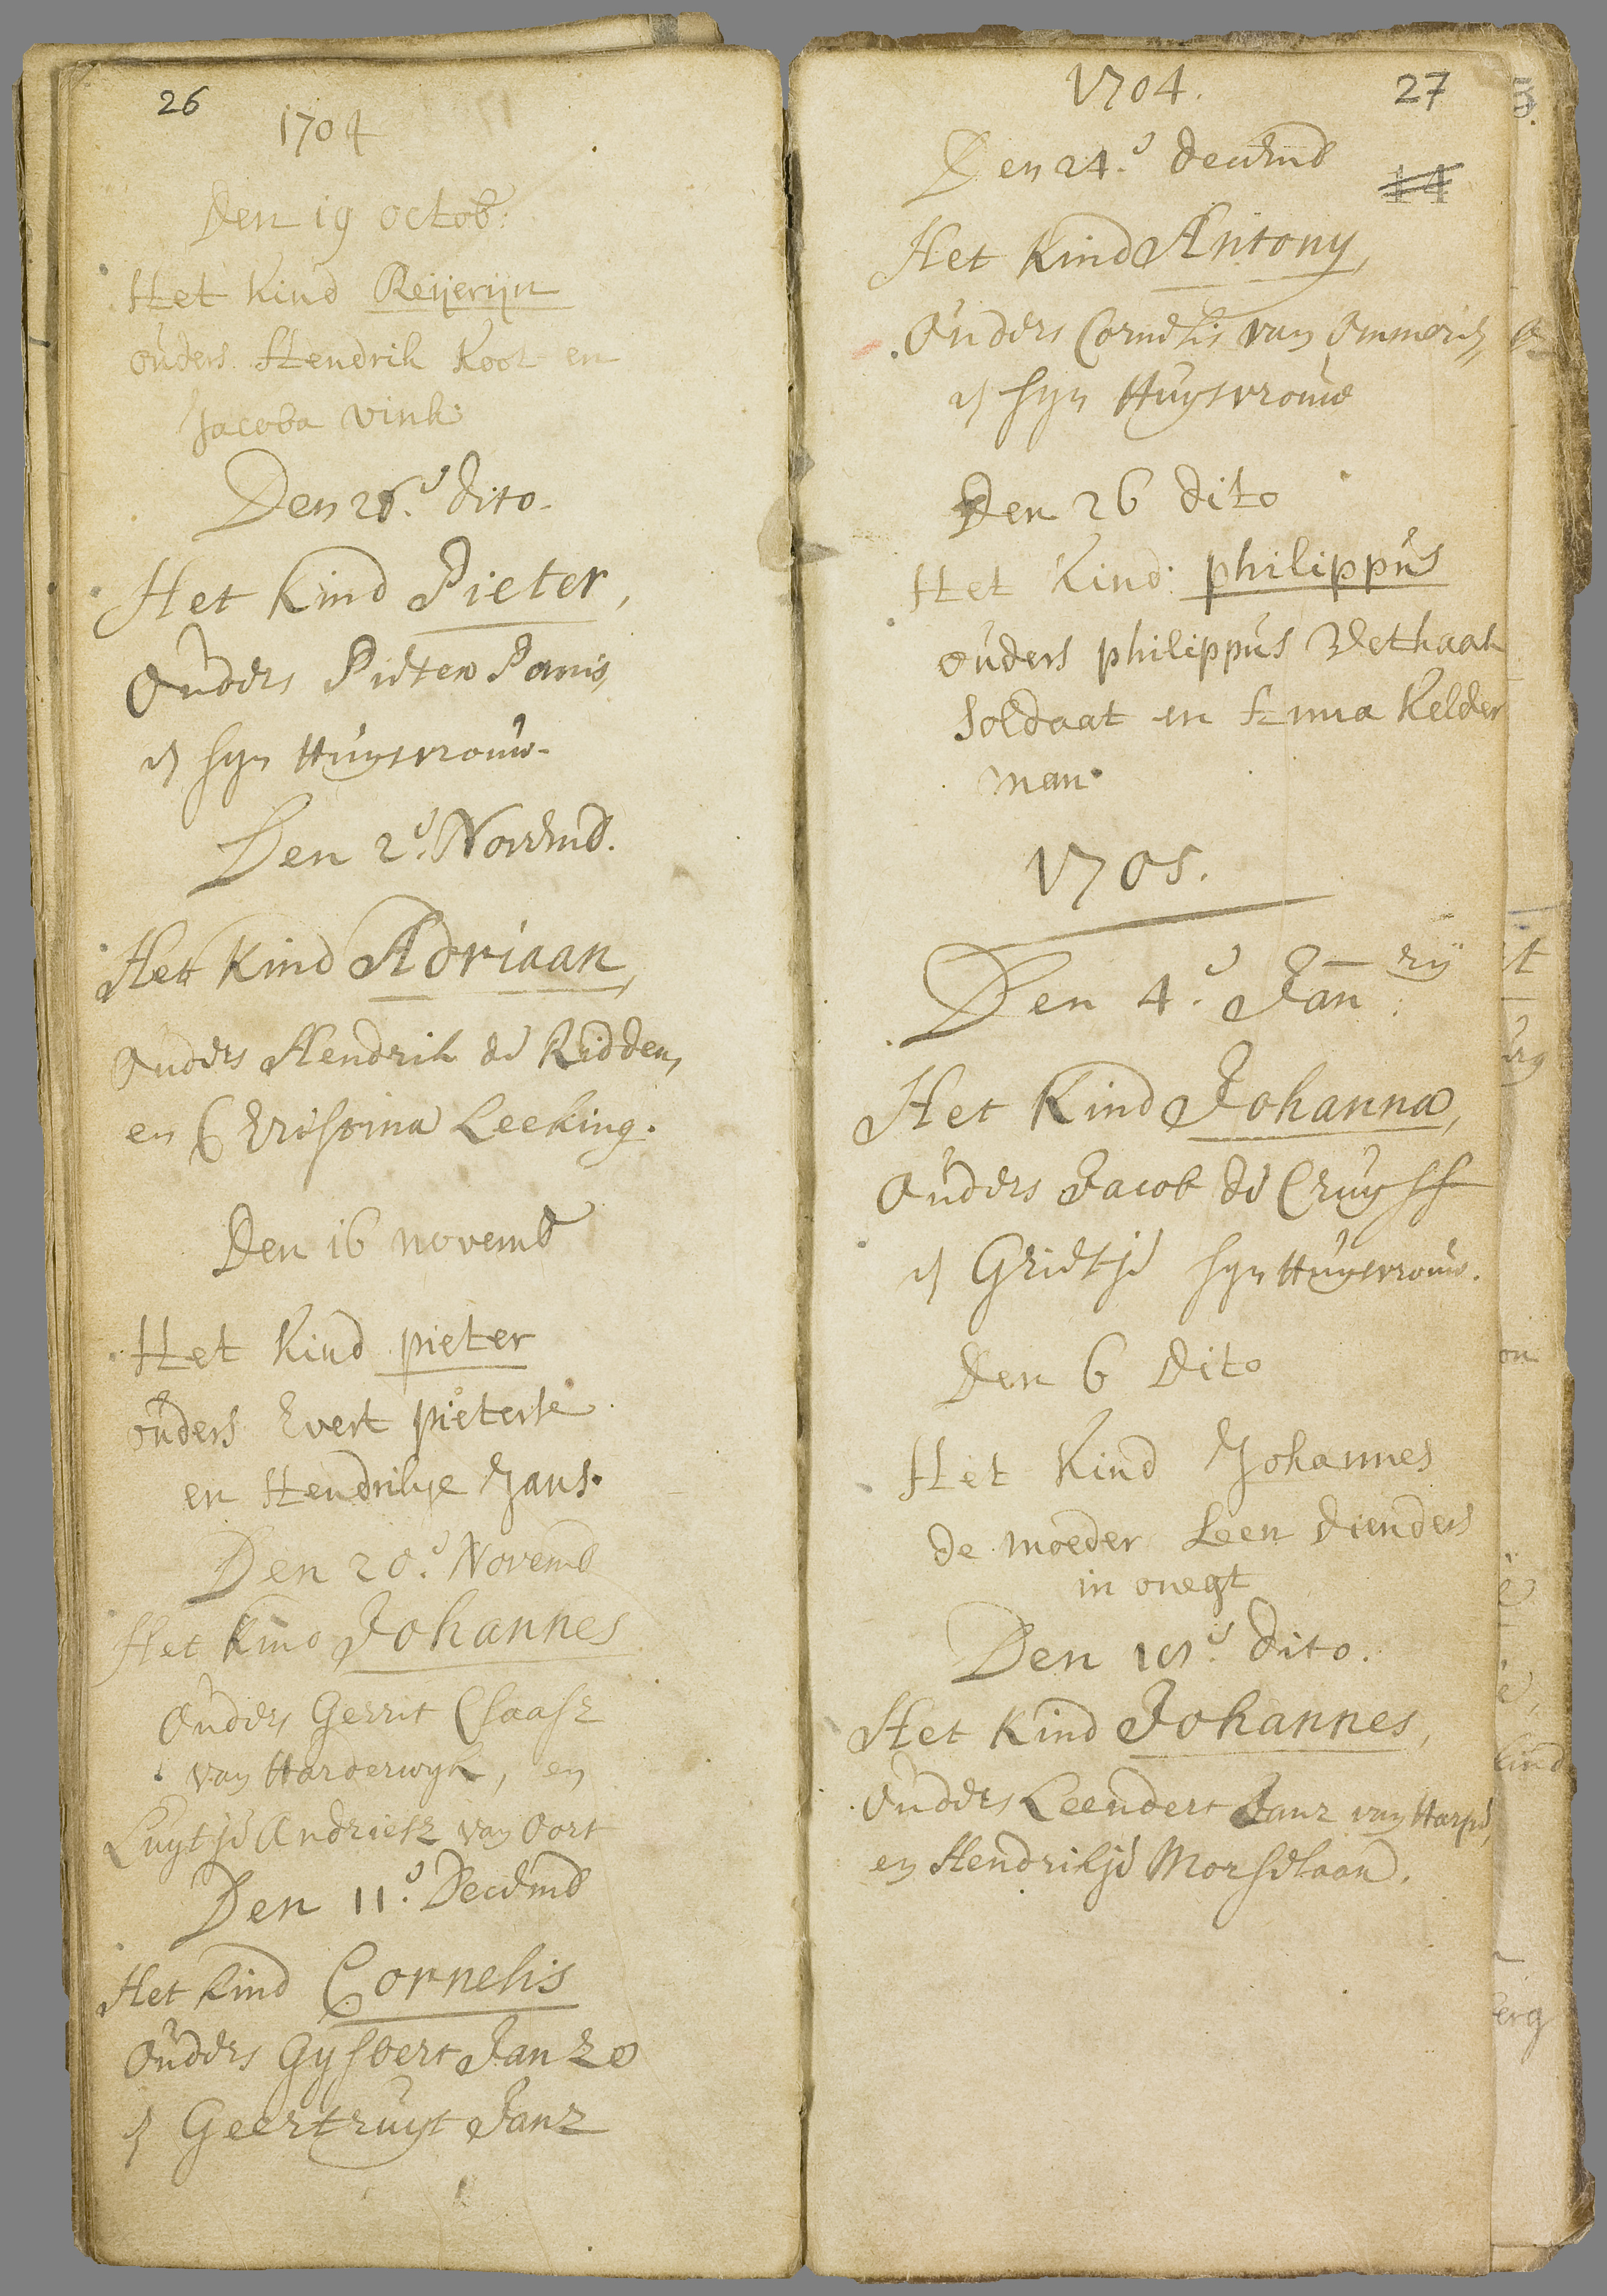 26
1704
Den 19 octob:
Het kind Reijerijn
ouders Hendrik Koot en
Jacoba vink:
Den 26.e dito.
Het kind Pieter,
Ouders Pieter
en syn Huysvrouw.
Den 2.e Novemb.
Het kind Adriaan,
Ouders Hendrik de Ridder,
en Christina Leeking.
Den 16 novemb
Het kind pieter
ouders Evert pieterse
en Hendrikje Jans.
Den 20.e Novemb
Het kind Johannes
Ouders Gerrit Claasz
van Harderwyk, en
Luytje Andriesz van Oort
Den 11.e Decemb
Het kind Cornelis
Ouders Gysbert Janze
en Geertruyt Janz
1704.
27
Den 24.e decemb
14
Het kind Antony,
Ouders Cornelis van Ommeren,
en syn Huysvrouwe
Den 26 dito
Het kind: philippus
ouders philippus Wethaak
soldaat en Anna Kelder
man.
1705.
Den 4.e Jan:rij
Het kind Johanna,
Ouders Jacob de Cruyff
en Grietje syn Huysvrouw.
Den 6 dito
Het kind Johannes
de moeder Leen dienders
in onegt
Den dito.
Het kind Johannes,
Ouders Leendert Janz van Harpe,
en Hendrikje Morselaan.